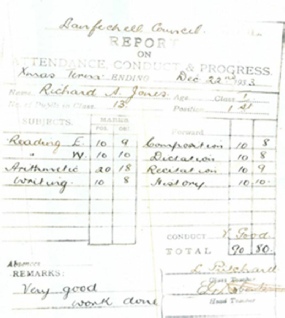 Llanfechell Council.
REPORT
ON
ATTENDANCE, CONDUCT & PROGRESS.
Xmas Term ENDING Dec 22nd 1953
Name Richard A. Jones. Age Class 1
No. of Pupils in Class. 13 Position 1st
SUBJECTS. MARKS
Reading E. 10 9 Composition 10 8
" W. 10 10 Dictation 10 8
Arithmetic 20 18 Recitation 10 9
Writing. 10 8 History 10 10.
CONDUCT V. Good
TOTAL 90 80.
Absences
REMARKS: L. Pritchard
Very good Class Teacher
work done
Head Teacher